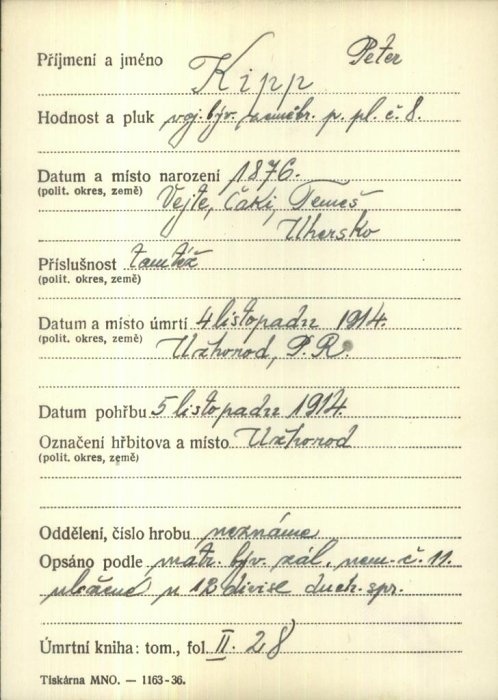 Příjmení a jméno Kipp Peter
Hodnost a pluk voj. býv. zeměbr. p. pl. č. 8.
Datum a místo narození 1876.
(polit. okres, země) Vejte, Čaki, Temeš
Uhersko
Příslušnost tamtéž
(polit. okres, země)
Datum a místo úmrtí 4 listopadu 1914.
(polit. okres, země) Užhorod, P. R.
Datum pohřbu 5 listopadu 1914.
Označení hřbitova a místo Užhorod
(polit. okres, země)
Oddělení, číslo hrobu neznámé
Opsáno podle matr. býv. zál. nem. č. 11.
uložené u 12 divise duch. spr.
Úmrtní kniha: tom., fol. II. 28
Tiskárna MNO. — 1163-36.